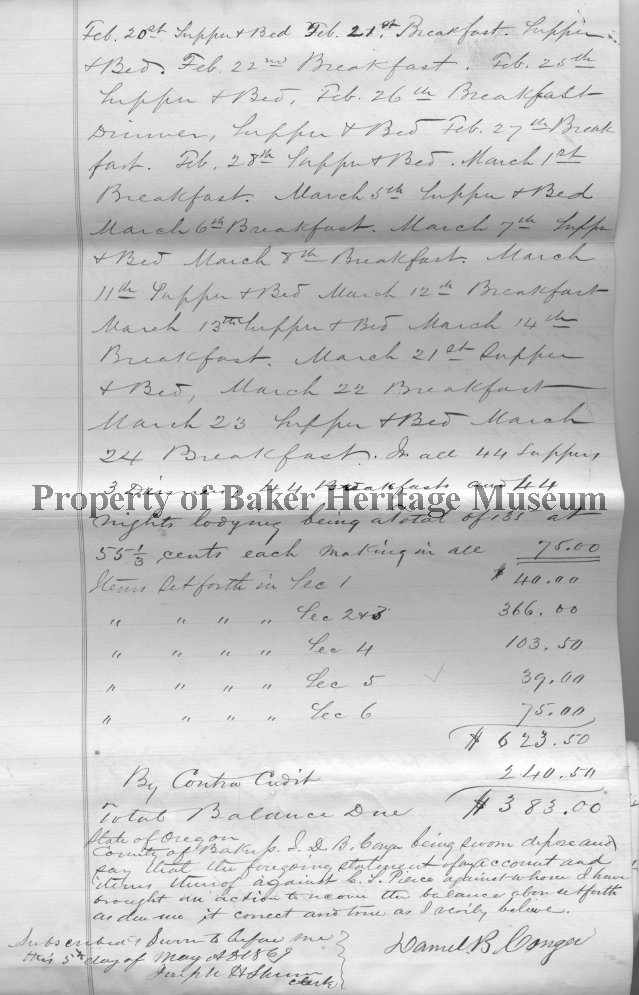 Feb. 20st Supper & Bed Feb. 21st. Breakfast. Supper
& Bed. Feb. 22nd Breakfast. Feb. 25th
Supper & Bed, Feb. 26th Breakfast
Dinner, Supper & Bed Feb. 27th Break
fast. Feb. 28th Supper & Bed. March 1st
Breakfast. March 5th Supper & Bed
March 6th Breakfast. March 7th Supper
& Bed March 8th Breakfast. March
11th Supper & Bed March 12th Breakfast
March 13th Supper & Bed March 14th
Breakfast. March 21st Supper
& Bed, March 22 Breakfast
March 23 Supper & Bed March
24 Breakfast. In all 44 Suppers
3 Dinners, 44 Breakfasts and 44
Property of Baker Heritage Museum
nights lodging being a total of 135 at
55 1/3 cents each making in all 75.00
Items Set forth in Sec 1 $ 40.00
" " " " Sec 2 & 3 366.00
" " " " Sec 4 103.50
" " " " Sec 5 39.00
" " " " Sec 6 75.00
$ 623.50
By Contra Credit 240.50
Total Balance Due $ 383.00
State of Oregon
County of Baker ss. I. D. B. Conger being sworn depose and
say that the foregoing statement of my account and
items thereof against C. S. Pierce against whom I have
brought an action to recover the balance above set forth
as due me is correct and true as I verily believe.
Subscribed & Sworn to before me
this 5th day of May AD 1869
Daniel B. Conger
Joseph H Shinn
Clerk